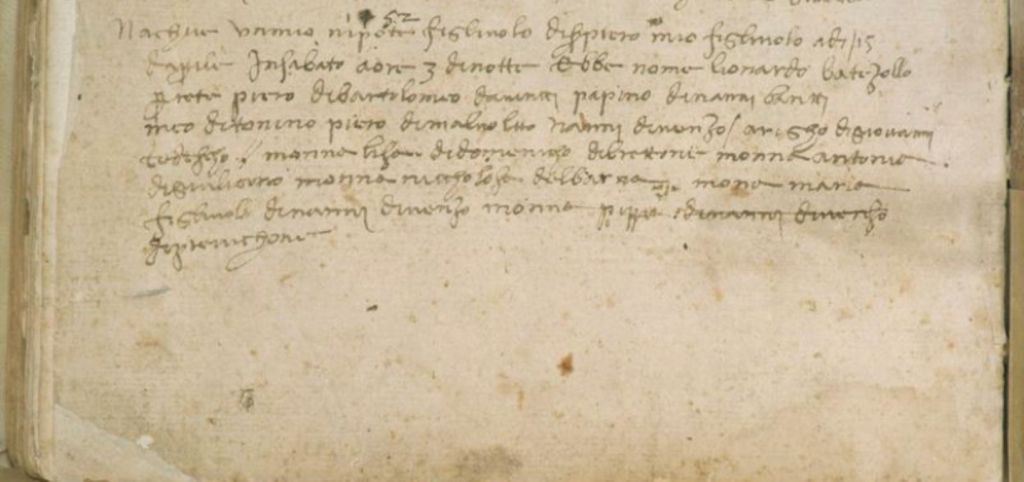 Nacque un mio nipote figliuolo di ser piero mio figliuolo adi 15
daprile in sabato a ore 3 di notte Ebbe nome Lionardo batezollo
prete piero di bartolomeo davinci papino di nanni banti
meo di tonino piero di malvolto nanni di venzo arigho di giovanni
tedescho monna lisa di domenicho di brettone monna antonia
di giuliano monna nicholosa del barna mona maria
figliuola di nanni di venzo monna pippa di nanni di venzo
di previchone